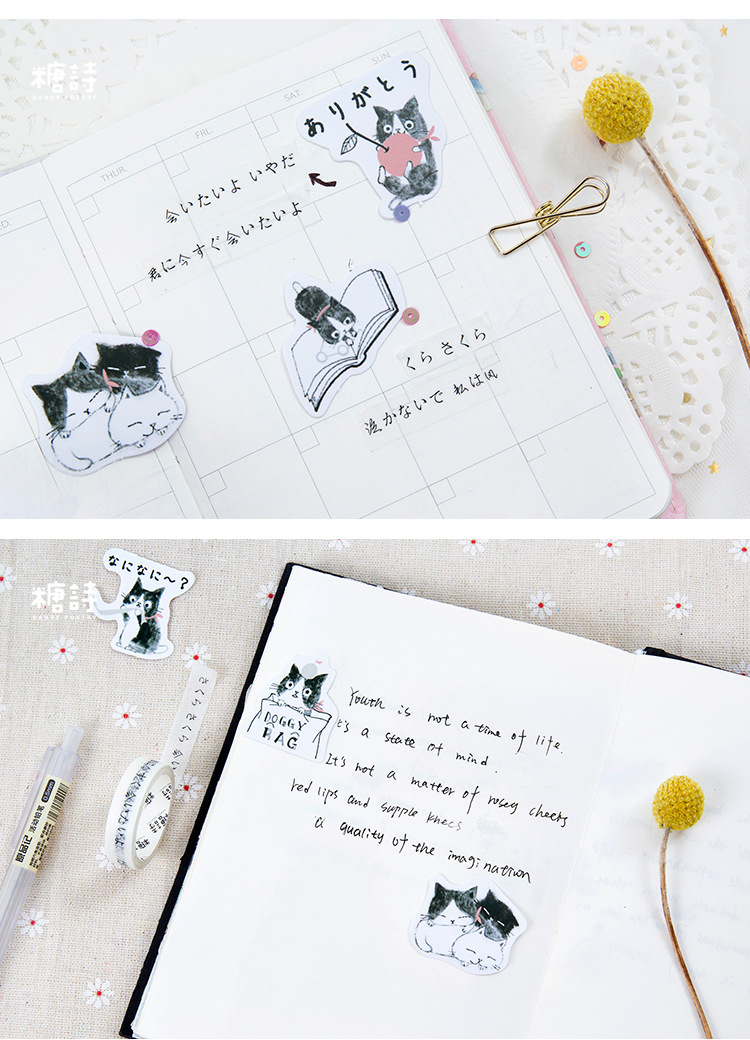 糖詩
CANDY POETRY
SUN.
SAT.
FRI.
THUR.
ありがとう
会いたいよ いやだ
君に今すぐ会いたいよ
!
くら さくら
泣かないで 私は
なになに〜?
糖詩
CANDY POETRY
さくらさくら
DOGGY
BAG
Youth is not a time of life.
t's a state of mind.
It's not a matter of rosey cheers
red lips and supple knees
a quality of the imagination